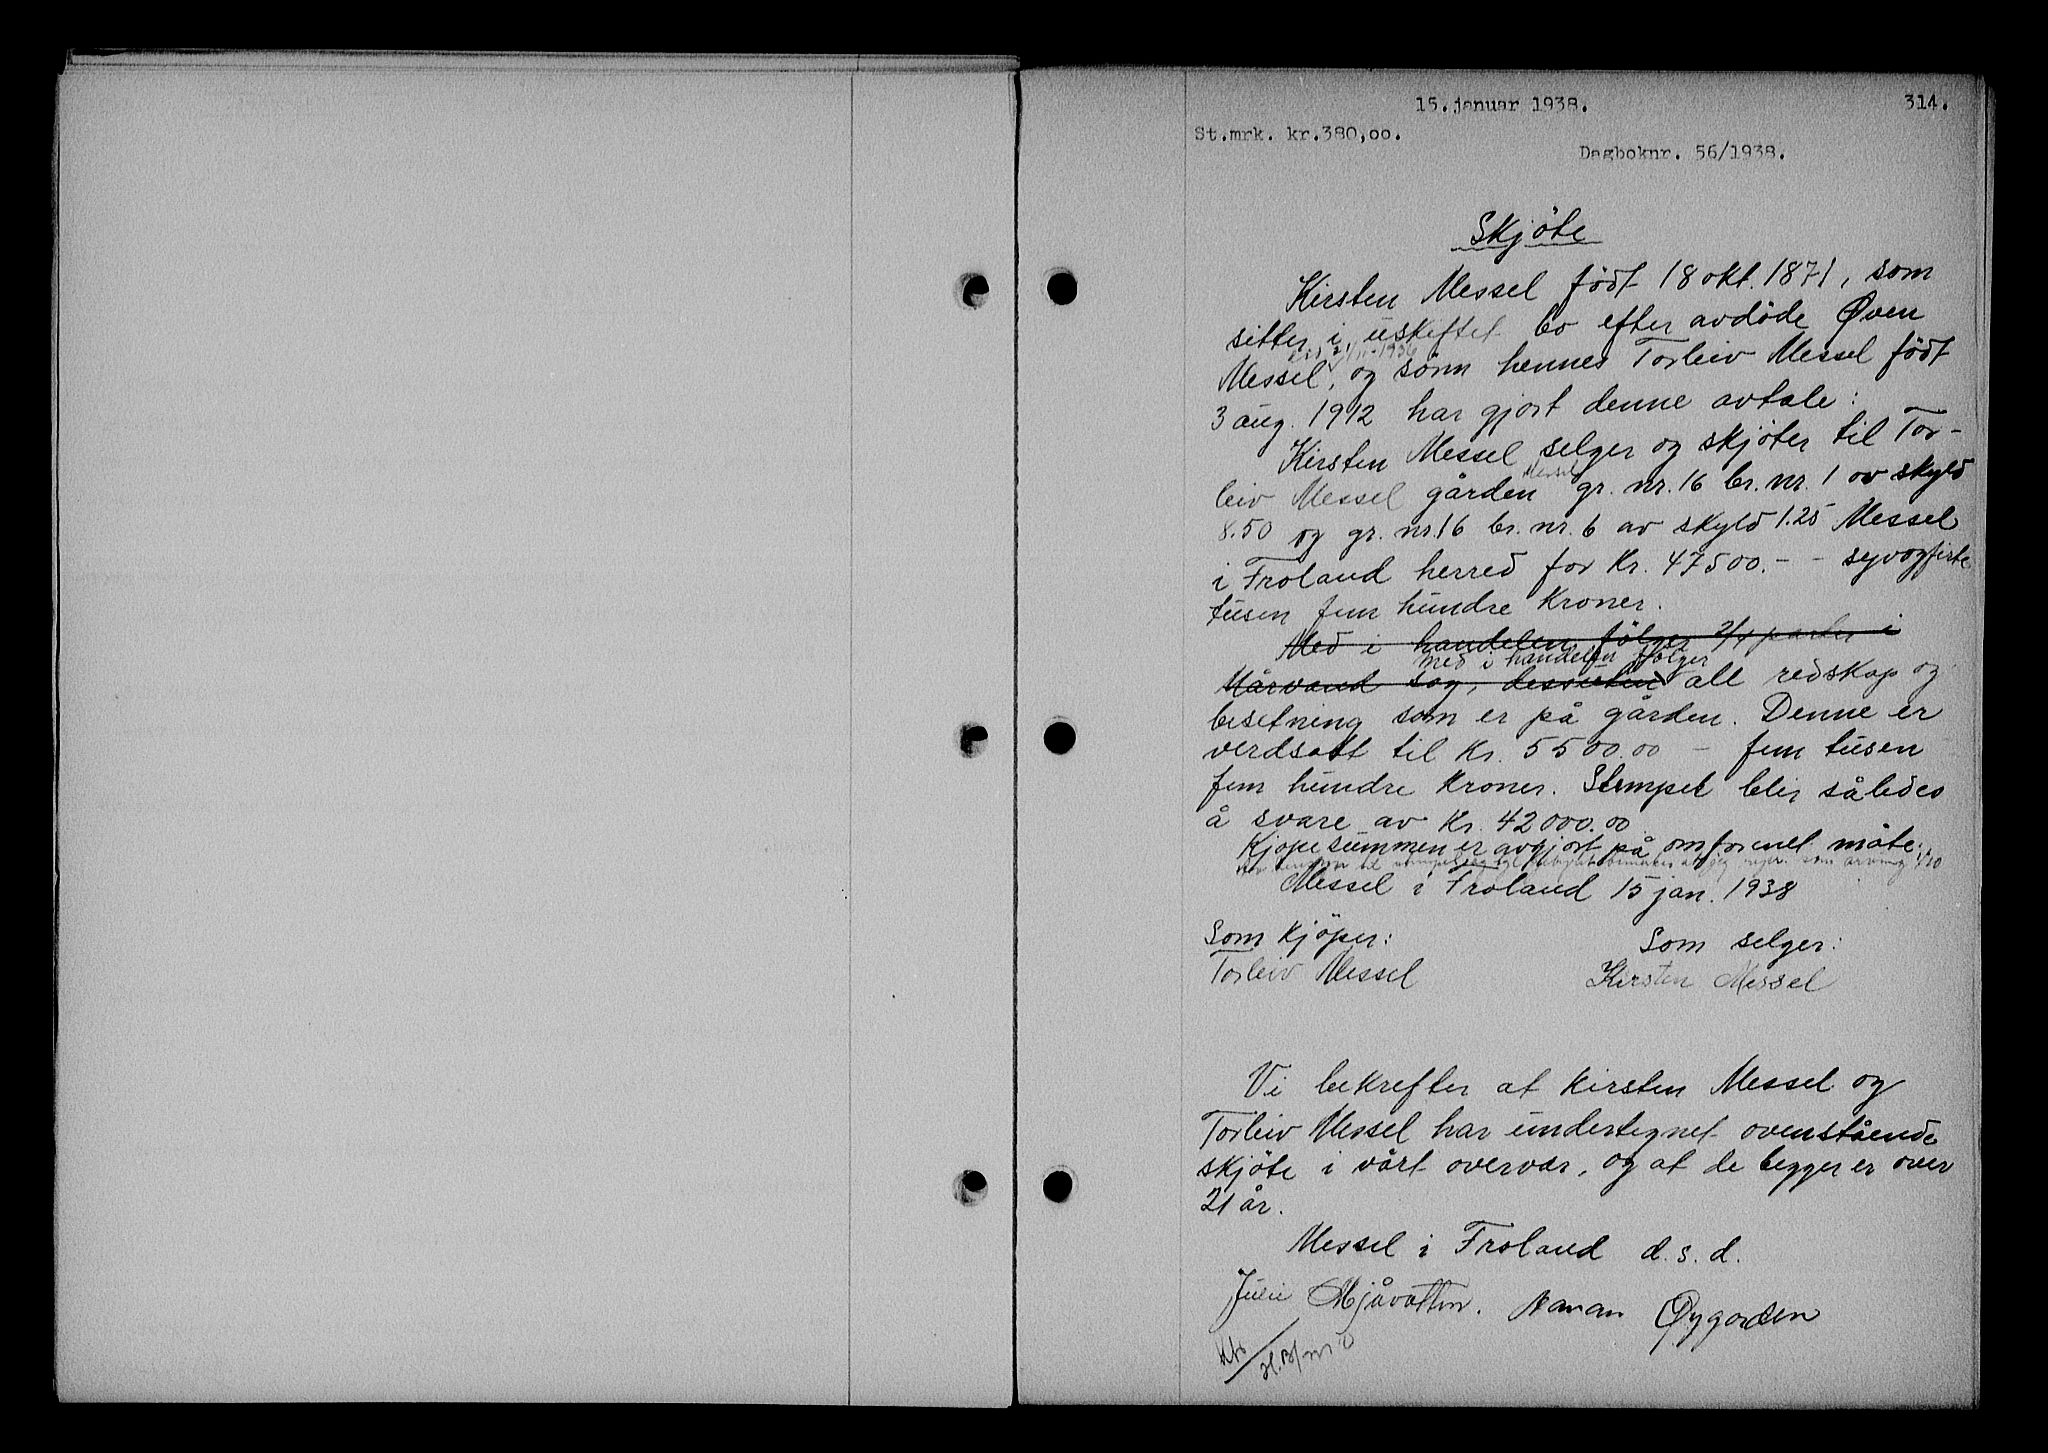 15.januar 1938.
314.
St.mrk. kr.380,oo.
Dagboknr. 56/1938.
Skjöte
Kirsten Messel født 18 okt. 1871, som
sitter i uskiftet bo efter avdöde Øven
Messel, og sönn hennes Torleiv Messel födt
3 aug. 1912 har gjort denne avtale:
Kirsten Messel selger og skjöter til Tor-
leiv Messel gården Messel gr. nr. 16 br. nr. 1 av skyld
8.50 og gr. nr. 16 br. nr. 6 av skyld 1.25 Messel
i Froland herred for Kr. 47500.- - syvogfirti
tusen fem hundre Kroner.
Med i handelen følger 2/4 parter i
med i handelen følger
Mårvand sag, dessuten all redskap og
besetning som er på gården. Denne er
verdsatt til Kr. 5500.00 - fem tusen
fem hundre Kroner. Stempel blir således
å svare av Kr. 42000.00
Kjøpesummen er avgjort på omforenet måte.
som arving
Messel i Froland 15 jan. 1938
Som Kjöper:
Som selger:
Torleiv Messel
Kirsten Messel
Vi bekrefter at Kirsten Messel og
Torleiv Messel har undertegnet ovenstående
skjöte i vårt overvær, og at de begge er over
21 år.
Messel i Froland d. s. d.
Julie Mjåvatten. Øygarden